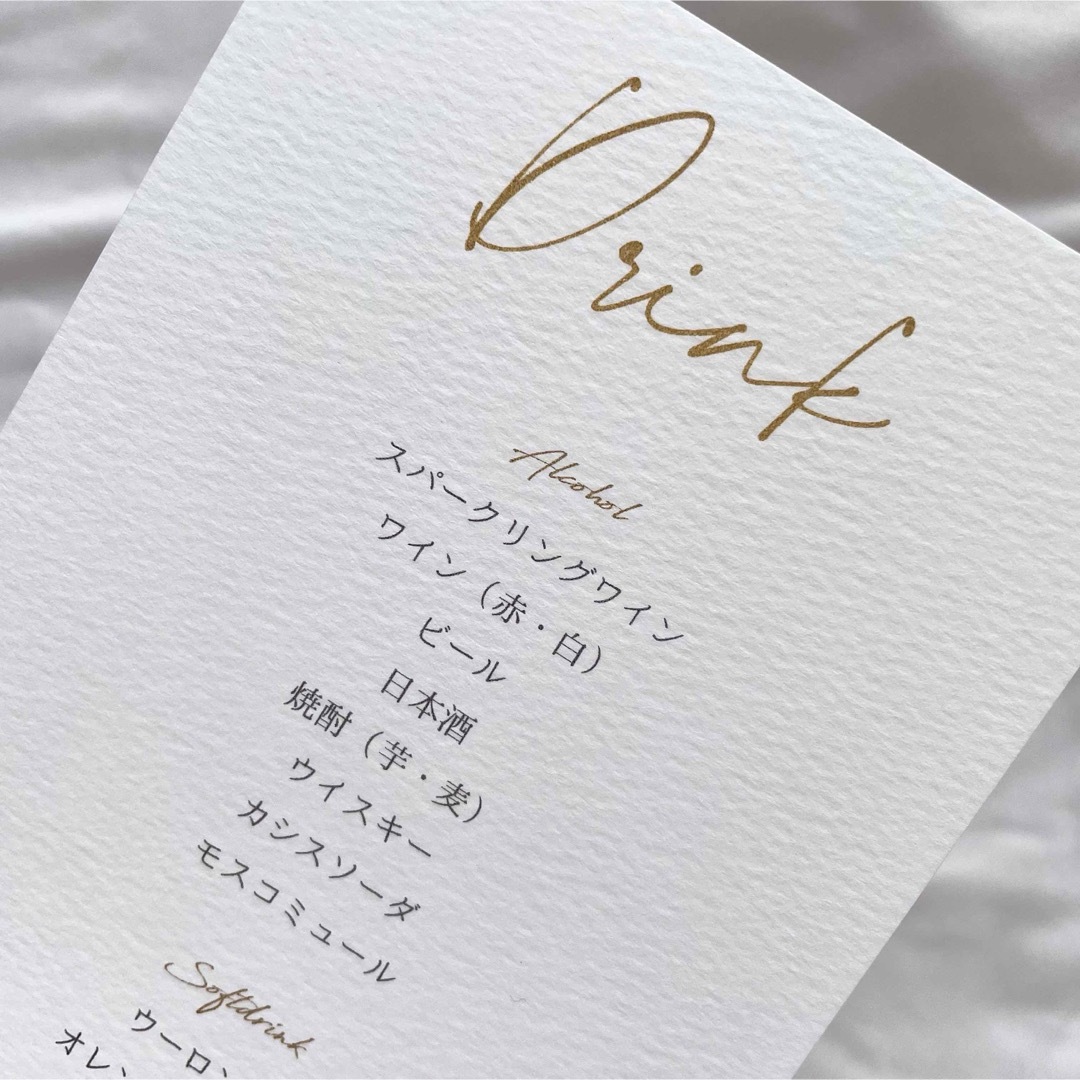 Drink
Alcohol
スパークリングワイン
ワイン（赤・白）
ビール
日本酒
焼酎（芋・麦）
ウイスキー
カシスソーダ
モスコミュール
Softdrink
ウーロ
オレ